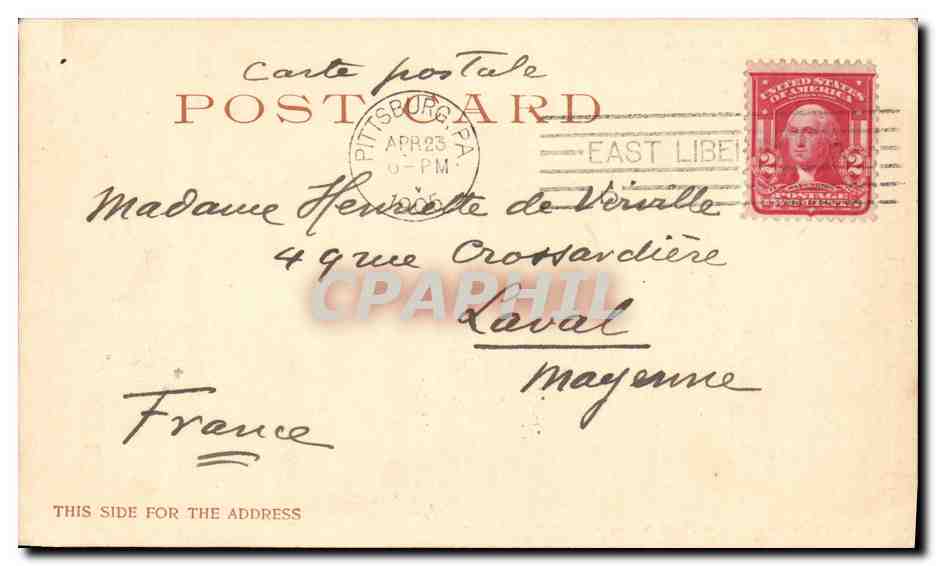 Carte postale
POST CARD
PITTSBURG, PA.
APR 23
6-PM
1905
EAST LIBE
UNITED STATES
OF AMERICA
2 2
POSTAGE
TWO CENTS
Madame Henriette de Virville
49 rue Crossardière
CPAPHIL
Laval
Mayenne
France
THIS SIDE FOR THE ADDRESS